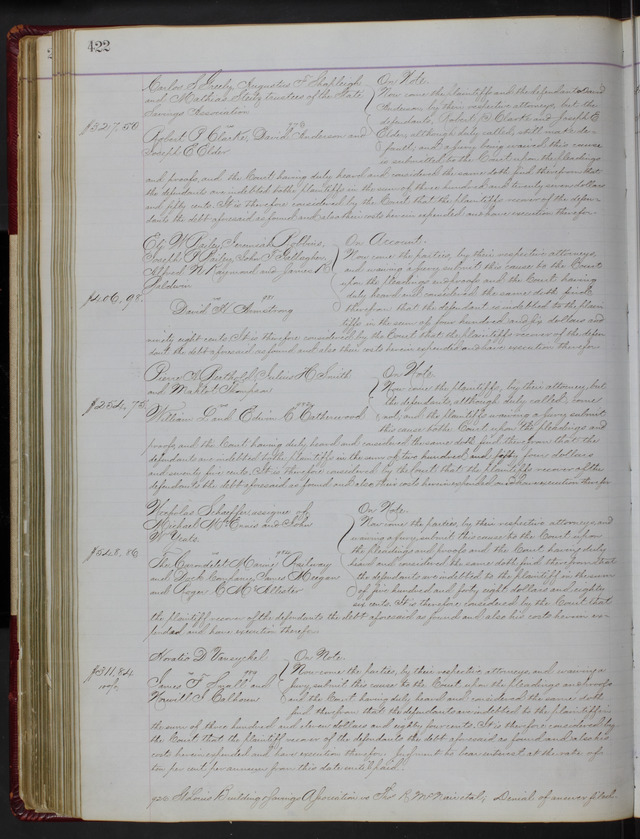 422
Carlos S. Greely Augustus F. Shapleigh
and trustees of the State
Savings Association
$327.50
Robert P. Clarke, David Anderson and
Joseph E Elder
On Note.
Now come the plaintiffs and the defendant David
Anderson by their respective attorneys, but the
defendants, Robert P. Clarke and Joseph E
Elder, although duly called, still make de-
fault, and a jury being waived this cause
is submitted to the Court upon the pleadings
and proofs, and the Court having duly heard and considered the same doth find therefrom that
the defendants are indebted to the plaintiffs in the sum of three hundred and twenty seven dollars
and fifty cents. It is therefore considered by the Court that the plaintiffs recover of the defen-
dants the debt aforesaid as found and also their costs herein expended and have execution therefor.
Jeremiah
Joseph P. Bailey, John S.
Alfred W. Raymond and James
Baldwin
$406.98
David H. Armstrong
On Account.
Now come the parties, by their respective attorneys,
and waiving a jury submit this cause to the Court
upon the pleadings and proofs and the Court having
duly heard and considered the same doth find
therefrom that the defendant is indebted to the plain-
tiffs in the sum of four hundred and six dollars and
ninety eight cents. It is therefore considered by the Court that the plaintiffs recover of the defen-
dant the debt aforesaid as found and also their costs herein expended and have execution therefor.
Julius H. Smith
and
$254.75
William Edwin C. Catherwood
On Note.
Now come the plaintiffs, by their attorney, but
the defendants, although duly called, come
not, and the plaintiffs waiving a jury submit
this cause to the Court upon the pleadings and
proofs, and the Court having duly heard and considered the same doth find therefrom that the
defendants are indebted to the plaintiffs in the sum of two hundred and fifty four dollars
and seventy five cents. It is therefore considered by the Court that the plaintiffs recover of the
defendants the debt aforesaid as found and also their costs herein expended and have execution therefor.
Nicholas Schaeffer assignee of
Michael and John
W. Yeats.
$548.86
The Carondelet Marine Railway
and Dock Company, James
and Roger
On Note.
Now come the parties, by their respective attorneys and
waiving a jury submit this cause to the Court upon
the pleadings and proofs and the Court having duly
heard and considered the same doth find therefrom that
the defendants are indebted to the plaintiff in the sum
of five hundred and forty eight dollars and eighty
six cents. It is therefore considered by the Court that
the plaintiff recover of the defendants the debt aforesaid as found and also his costs herein ex-
pended and have execution therefor.
Horatio D.
$311.84
James F. and
Calhoun
On Note.
Now come the parties, by their respective attorneys, and waiving a
jury, submit this cause to the Court upon the pleadings and proofs
and the Court having duly heard and considered the same doth
find therefrom that the defendants are indebted to the plaintiff in
the sum of three hundred and eleven dollars and eighty four cents. It is therefore considered by
the Court that the plaintiff recover of the defendants the debt aforesaid as found and also his
costs herein expended and have execution therefor. Judgment to bear interest at the rate of
ten per cent per annum from this date until paid.
St Louis Building & Savings Association vs et al, Denial of answer filed.